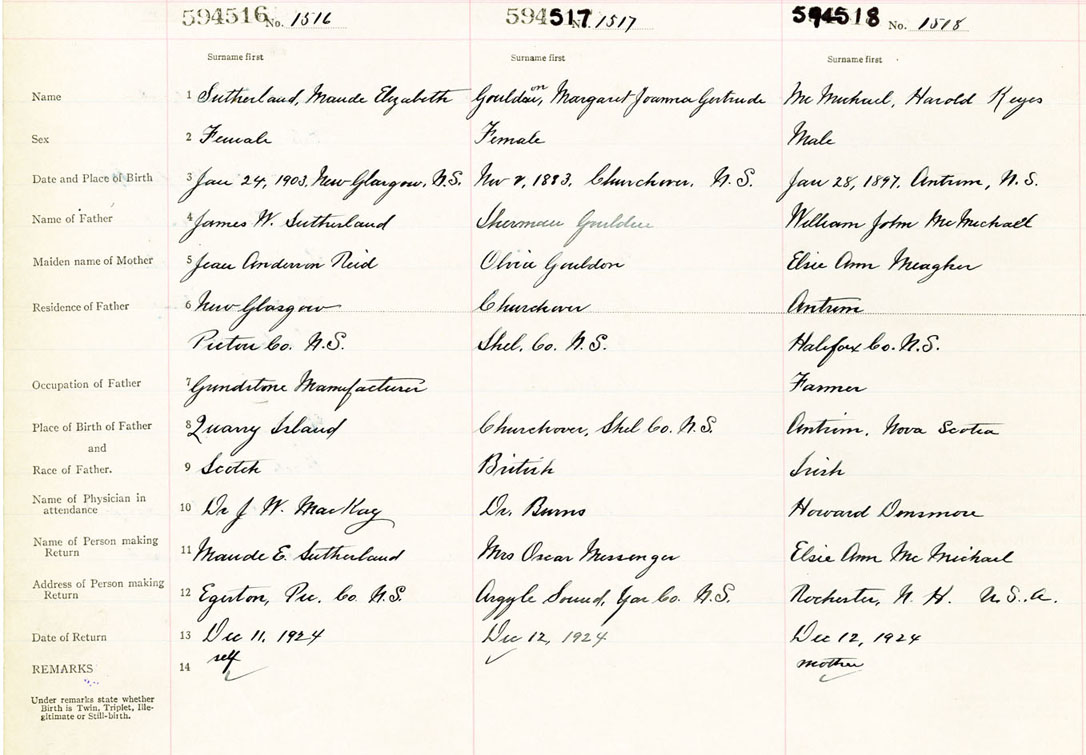 594516 No. 1516 594517 No. 1517 594518 No. 1518
Surname first Surname first Surname first
Name 1 Sutherland, Maude Elizabeth Gouldon, Margaret Joanna Gertrude McMichael, Harold Keyes
Sex 2 Female Female Male
Date and Place of Birth 3 Jan 24, 1903, New Glasgow, N.S. Nov 8, 1883, Churchover, N.S. Jan 28, 1897, Antrim, N.S.
Name of Father 4 James W. Sutherland Sherman Goulden William John McMichael
Maiden name of Mother 5 Jean Anderson Reid Olvia Gouldon Elsie Ann Meagher
Residence of Father 6 New Glasgow Churchover Antrim
Pictou Co. N.S. Shel. Co. N.S. Halifax Co. N.S.
Occupation of Father 7 Grindstone Manufacturer Farmer
Place of Birth of Father 8 Quarry Island Churchover, Shel Co. N.S. Antrim, Nova Scotia
and
Race of Father. 9 Scotch British Irish
Name of Physician in
attendance 10 Dr J. W. MacKay Dr. Burns Howard Densmore
Name of Person making
Return 11 Maude E. Sutherland Mrs Oscar Messenger Elsie Ann McMichael
Address of Person making
Return 12 Egerton, Pic. Co. N.S. Argyle Sound, Yar Co. N.S. Rochester, N. H. U.S.A.
Date of Return 13 Dec 11, 1924 Dec 12, 1924 Dec 12, 1924
REMARKS 14 self mother
Under remarks state whether
Birth is Twin, Triplet, Ille-
gitimate or Still-birth.